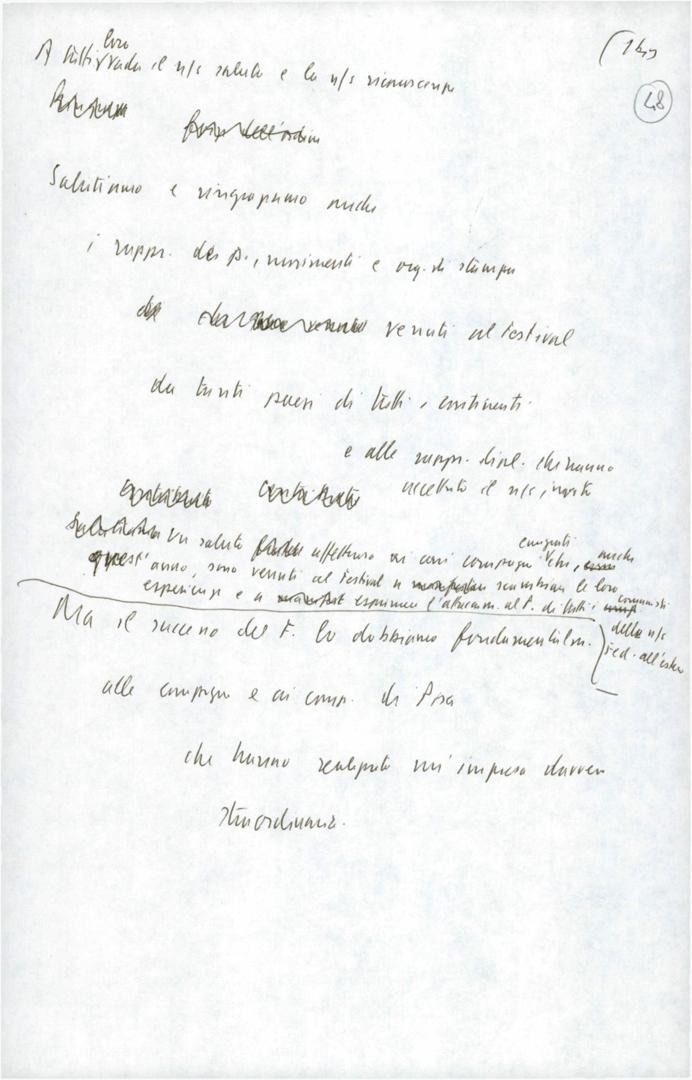 (14
48
A tutti loro vada il n/s saluto e la n/s riconoscenza
forze dell'ordine
Salutiamo e ringraziamo anche
i rappr. dei p., movimenti e org. di stampa
venuti al Festival
da tanti paesi di tutti i continenti.
e alle rappr. dipl. che hanno
accettato il n/s invito
Un saluto affettuoso ai cari compagni emigranti che, anche
quest'anno, sono venuti al Festival a scambiare le loro
esperienze e a esprimere l'attaccam. al P. di tutti i comunisti
delle n/s
fed. all'estero
Ma il successo del F. lo dobbiamo fondamentalm.
alle compagne e ai comp. di Pisa
che hanno realizzato un'impresa davvero
straordinaria.